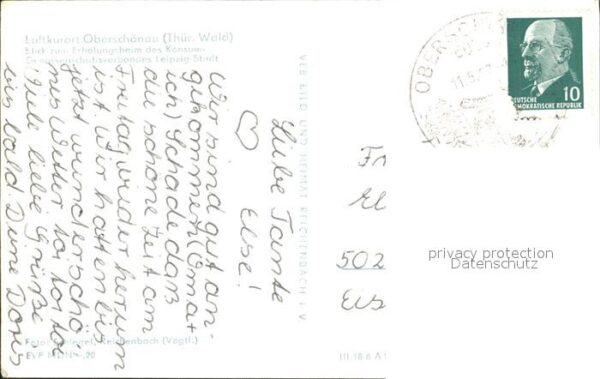 Luftkurort Oberschönau (Thür. Wald)
Blick zum Erholungsheim des Konsum-
Genossenschaftsverbandes Leipzig-Stadt
Liebe Tante
Else!
Wir sind gut an-
gekommen (Oma +
ich) Schade daß
die schöne Zeit am
Freitag wieder herum
ist. Wir hatten bis
jetzt wunderschö-
nes Wetter
Viele liebe Grüße
bis bald. Deine Doris
VEB BILD UND HEIMAT REICHENBACH I. V.
Reichenbach (Vogtl.)
EVP MDN -,20
III 18 6 A 1
OBERSCH
11.5.
10
DEUTSCHE
DEMOKRATISCHE REPUBLIK
Fr
El
502
Eis
privacy protection
Datenschutz